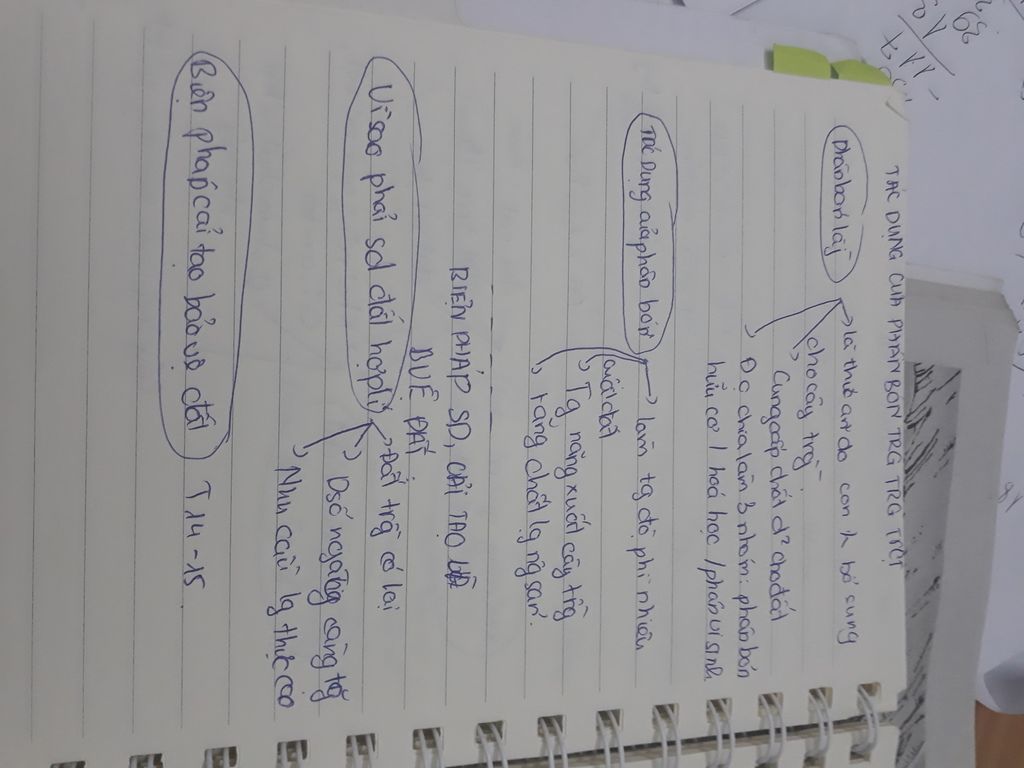 TÁC DỤNG CỦA PHÂN BÓN TRG TRG TRỌT
Phân bón là j
là thứ ăn do con ng bổ sung
cho cây trg
Cung cấp chất d² cho đất
Đc chia làm 3 nhóm: phân bón
hữu cơ / hoá học / phân vi sinh
Tác Dụng của phân bón
làm tg độ phì nhiêu
của đất
Tg năng xuất cây trồng
tăng chất lg ng sản
BIỆN PHÁP SD, CẢI TẠO
ĐẤT
Vì sao phải sd đất hợp lý
Đất trồng có lại
Dsố ngày càng tg
Nhu cầu lg thực cao
Biện pháp cải tạo bảo vệ đất T14-15
39